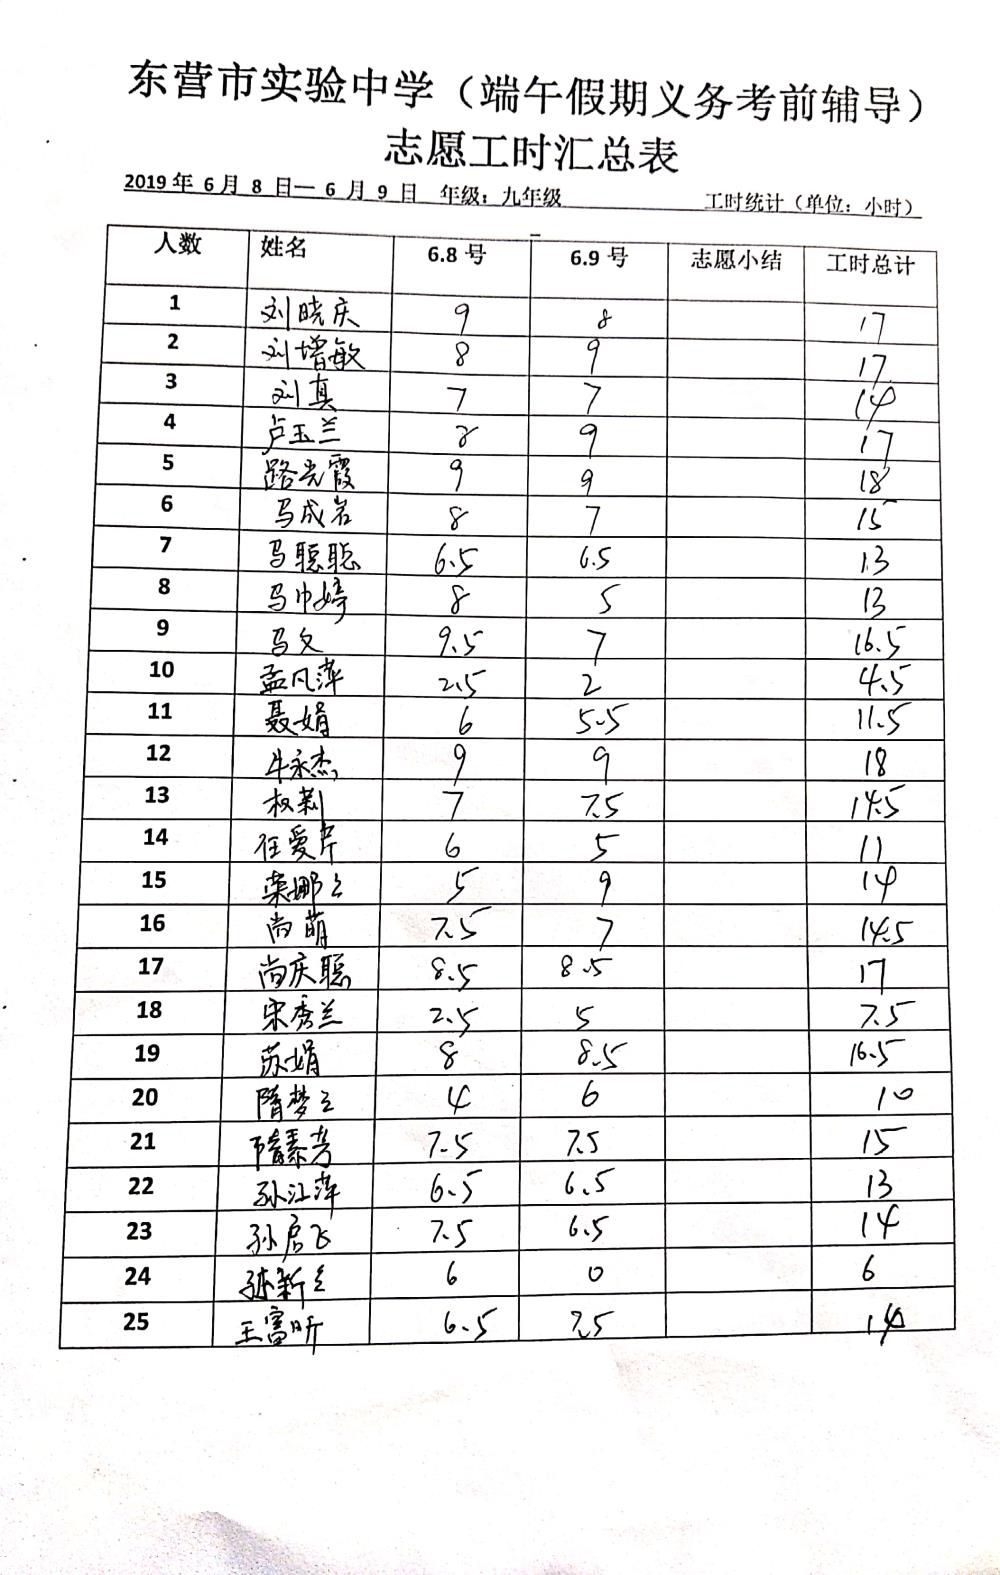 东营市实验中学（端午假期义务考前辅导）
志愿工时汇总表
2019年 6月 8 日— 6 月 9 日 年级：九年级 工时统计（单位：小时）
人数 姓名 6.8号 6.9号 志愿小结 工时总计
1 刘晓庆 9 8 17
2 刘增敏 8 9 17
3 刘真 7 7 14
4 卢玉兰 8 9 17
5 路光霞 9 9 18
6 马成岩 8 7 15
7 马聪聪 6.5 6.5 13
8 马巾婷 8 5 13
9 马文 9.5 7 16.5
10 孟凡萍 2.5 2 4.5
11 聂娟 6 5.5 11.5
12 牛永杰 9 9 18
13 权莉 7 7.5 14.5
14 任爱芹 6 5 11
15 荣娜娜 5 9 14
16 尚萌 7.5 7 14.5
17 尚庆聪 8.5 8.5 17
18 宋秀兰 2.5 5 7.5
19 苏娟 8 8.5 16.5
20 隋梦 4 6 10
21 隋泰芳 7.5 7.5 15
22 孙江萍 6.5 6.5 13
23 孙启飞 7.5 6.5 14
24 新 6 0 6
25 王富昕 6.5 7.5 14